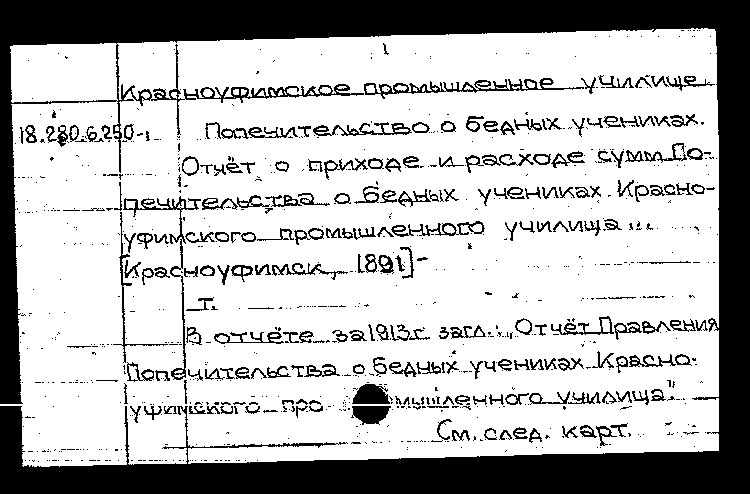 1
Красноуфимское промышленное училище.
18.280.6.250-, Попечительство о бедных учениках.
Отчёт о приходе и расходе сумм По-
печительства о бедных учениках Красно-
уфимского промышленного училища...
[Красноуфимск, 1891]-
т.
В отчёте за 1913 г. загл.: „Отчёт Правления
Попечительства о бедных учениках Красно-
уфимского про мышленного училища".
См. след. карт.